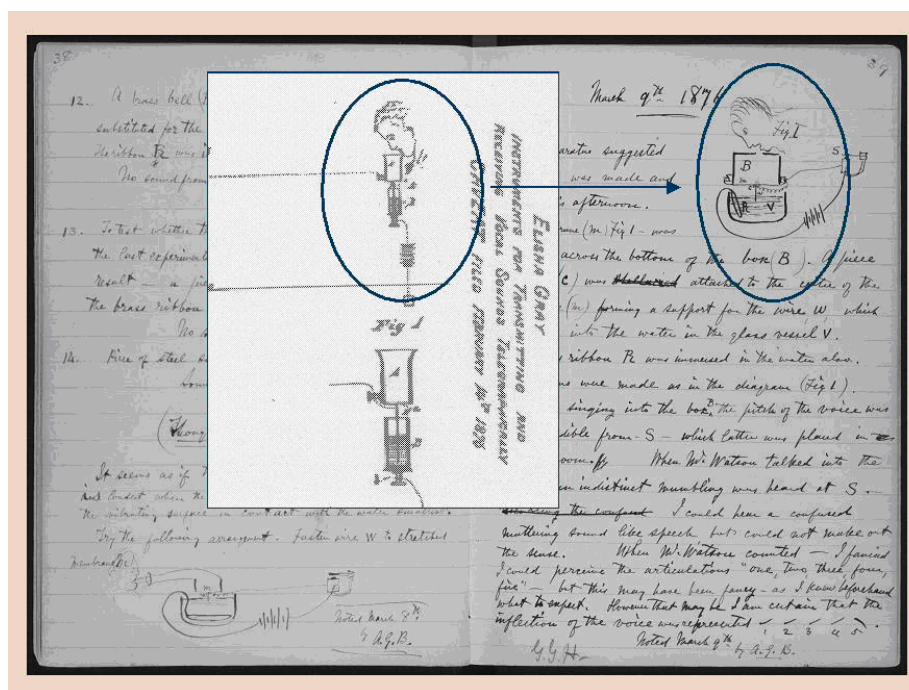 38
12. A brass bell
substituted for the
the ribbon R was
No sound from
13. To test whether
the last experiment
result a
the brass ribbon
No
14. Piece of steel
It seems as if
the vibrating surface in contact with the water smaller.
Try the following arrangement. Fasten wire W to stretched
membrane
Noted March 8th
by A.G.B.
ELISHA GRAY
INSTRUMENTS FOR TRANSMITTING AND
RECEIVING VOCAL SOUNDS TELEGRAPHICALLY
CAVEAT FILED FEBRUARY 14th 1876
Fig 1
39
March 9th 1876
Fig. 1
S
B
R V
suggested
was made and
afternoon.
(m) Fig 1 - was
across the bottom of the box (B). A piece
was attached to the centre of the
(m) forming a support for the wire W, which
into the water in the glass vessel V.
ribbon R was immersed in the water also.
were made as in the diagram (Fig 1).
singing into the box B the pitch of the voice was
from - S - which latter was placed in
When Mr. Watson talked into the
an indistinct mumbling was heard at S. -
I could hear a confused
muttering sound like speech but could not make out
the sense. When Mr. Watson counted - I fancied
I could perceive the articulations "one, two, three, four,
five" - but this may have been fancy - as I knew beforehand
what to expect. However that may be I am certain that the
inflection of the voice was represented
1 2 3 4 5
G.G.H. Noted March 9th by A.G.B.